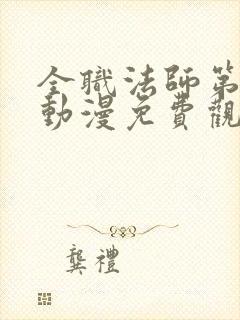 全職法師第
動漫免費觀
龔禮